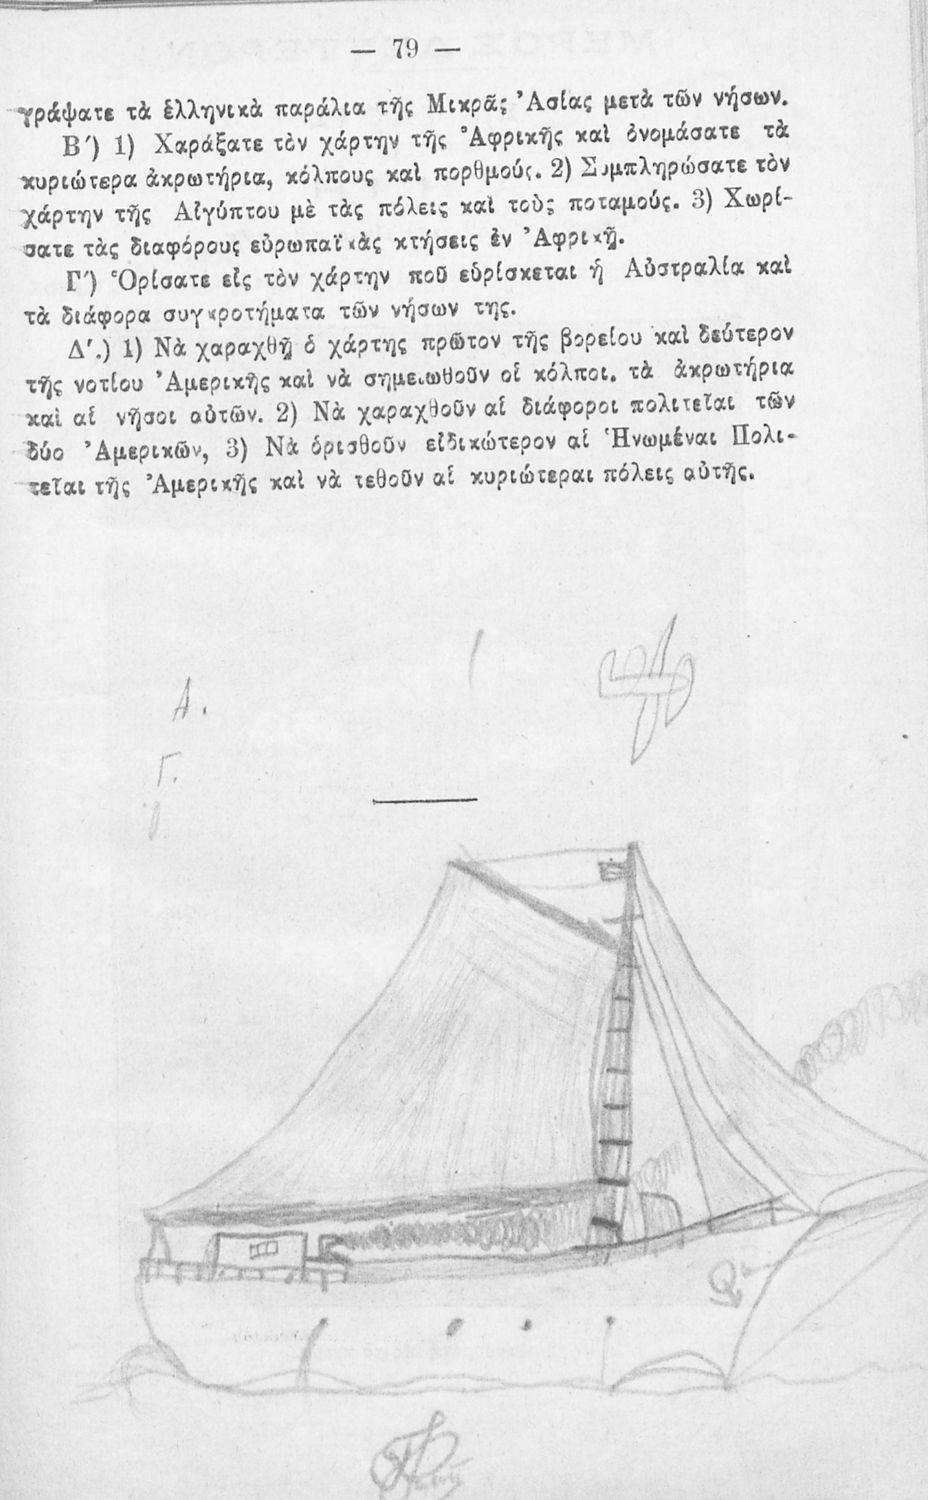 — 79 —
γράψατε τὰ ἑλληνικὰ παράλια τῆς Μικρᾶς Ἀσίας μετὰ τῶν νήσων.
Β′) 1) Χαράξατε τὸν χάρτην τῆς Ἀφρικῆς καὶ ὀνομάσατε τὰ
κυριώτερα ἀκρωτήρια, κόλπους καὶ πορθμούς. 2) Συμπληρώσατε τὸν
χάρτην τῆς Αἰγύπτου μὲ τὰς πόλεις καὶ τοὺς ποταμούς. 3) Χωρί-
σατε τὰς διαφόρους εὐρωπαϊκὰς κτήσεις ἐν Ἀφρικῇ.
Γ′) Ὁρίσατε εἰς τὸν χάρτην ποῦ εὑρίσκεται ἡ Αὐστραλία καὶ
τὰ διάφορα συγκροτήματα τῶν νήσων της.
Δ′.) 1) Νὰ χαραχθῇ ὁ χάρτης πρῶτον τῆς βορείου καὶ δεύτερον
τῆς νοτίου Ἀμερικῆς καὶ νὰ σημειωθοῦν οἱ κόλποι. τὰ ἀκρωτήρια
καὶ αἱ νῆσοι αὐτῶν. 2) Νὰ χαραχθοῦν αἱ διάφοροι πολιτεῖαι τῶν
δύο Ἀμερικῶν, 3) Νὰ ὁρισθοῦν εἰδικώτερον αἱ Ἡνωμέναι Πολι-
τεῖαι τῆς Ἀμερικῆς καὶ νὰ τεθοῦν αἱ κυριώτεραι πόλεις αὐτῆς.
Α.
Γ.